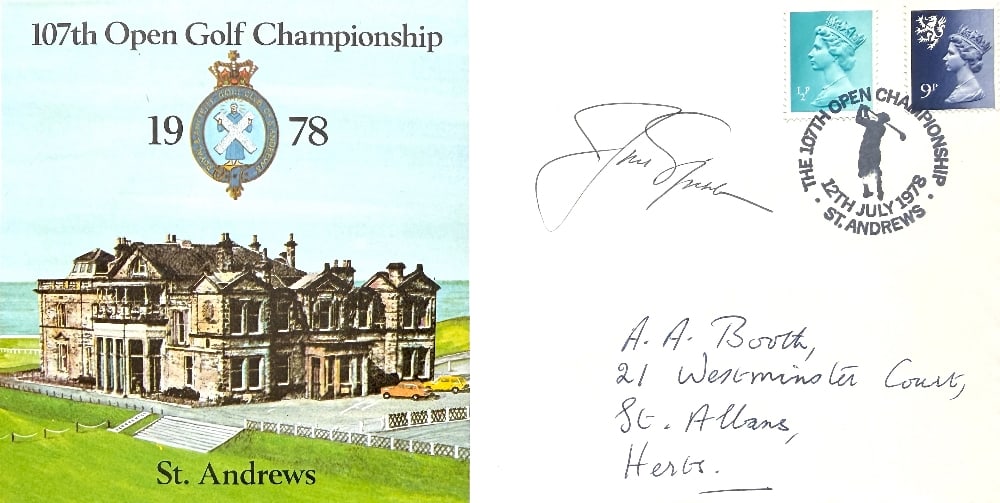 107th Open Golf Championship
19 78
St. Andrews
½P
9P
THE 107TH OPEN CHAMPIONSHIP
12TH JULY 1978
ST. ANDREWS
A. A. Booth,
21 Westminster Court,
St. Albans,
Herts.